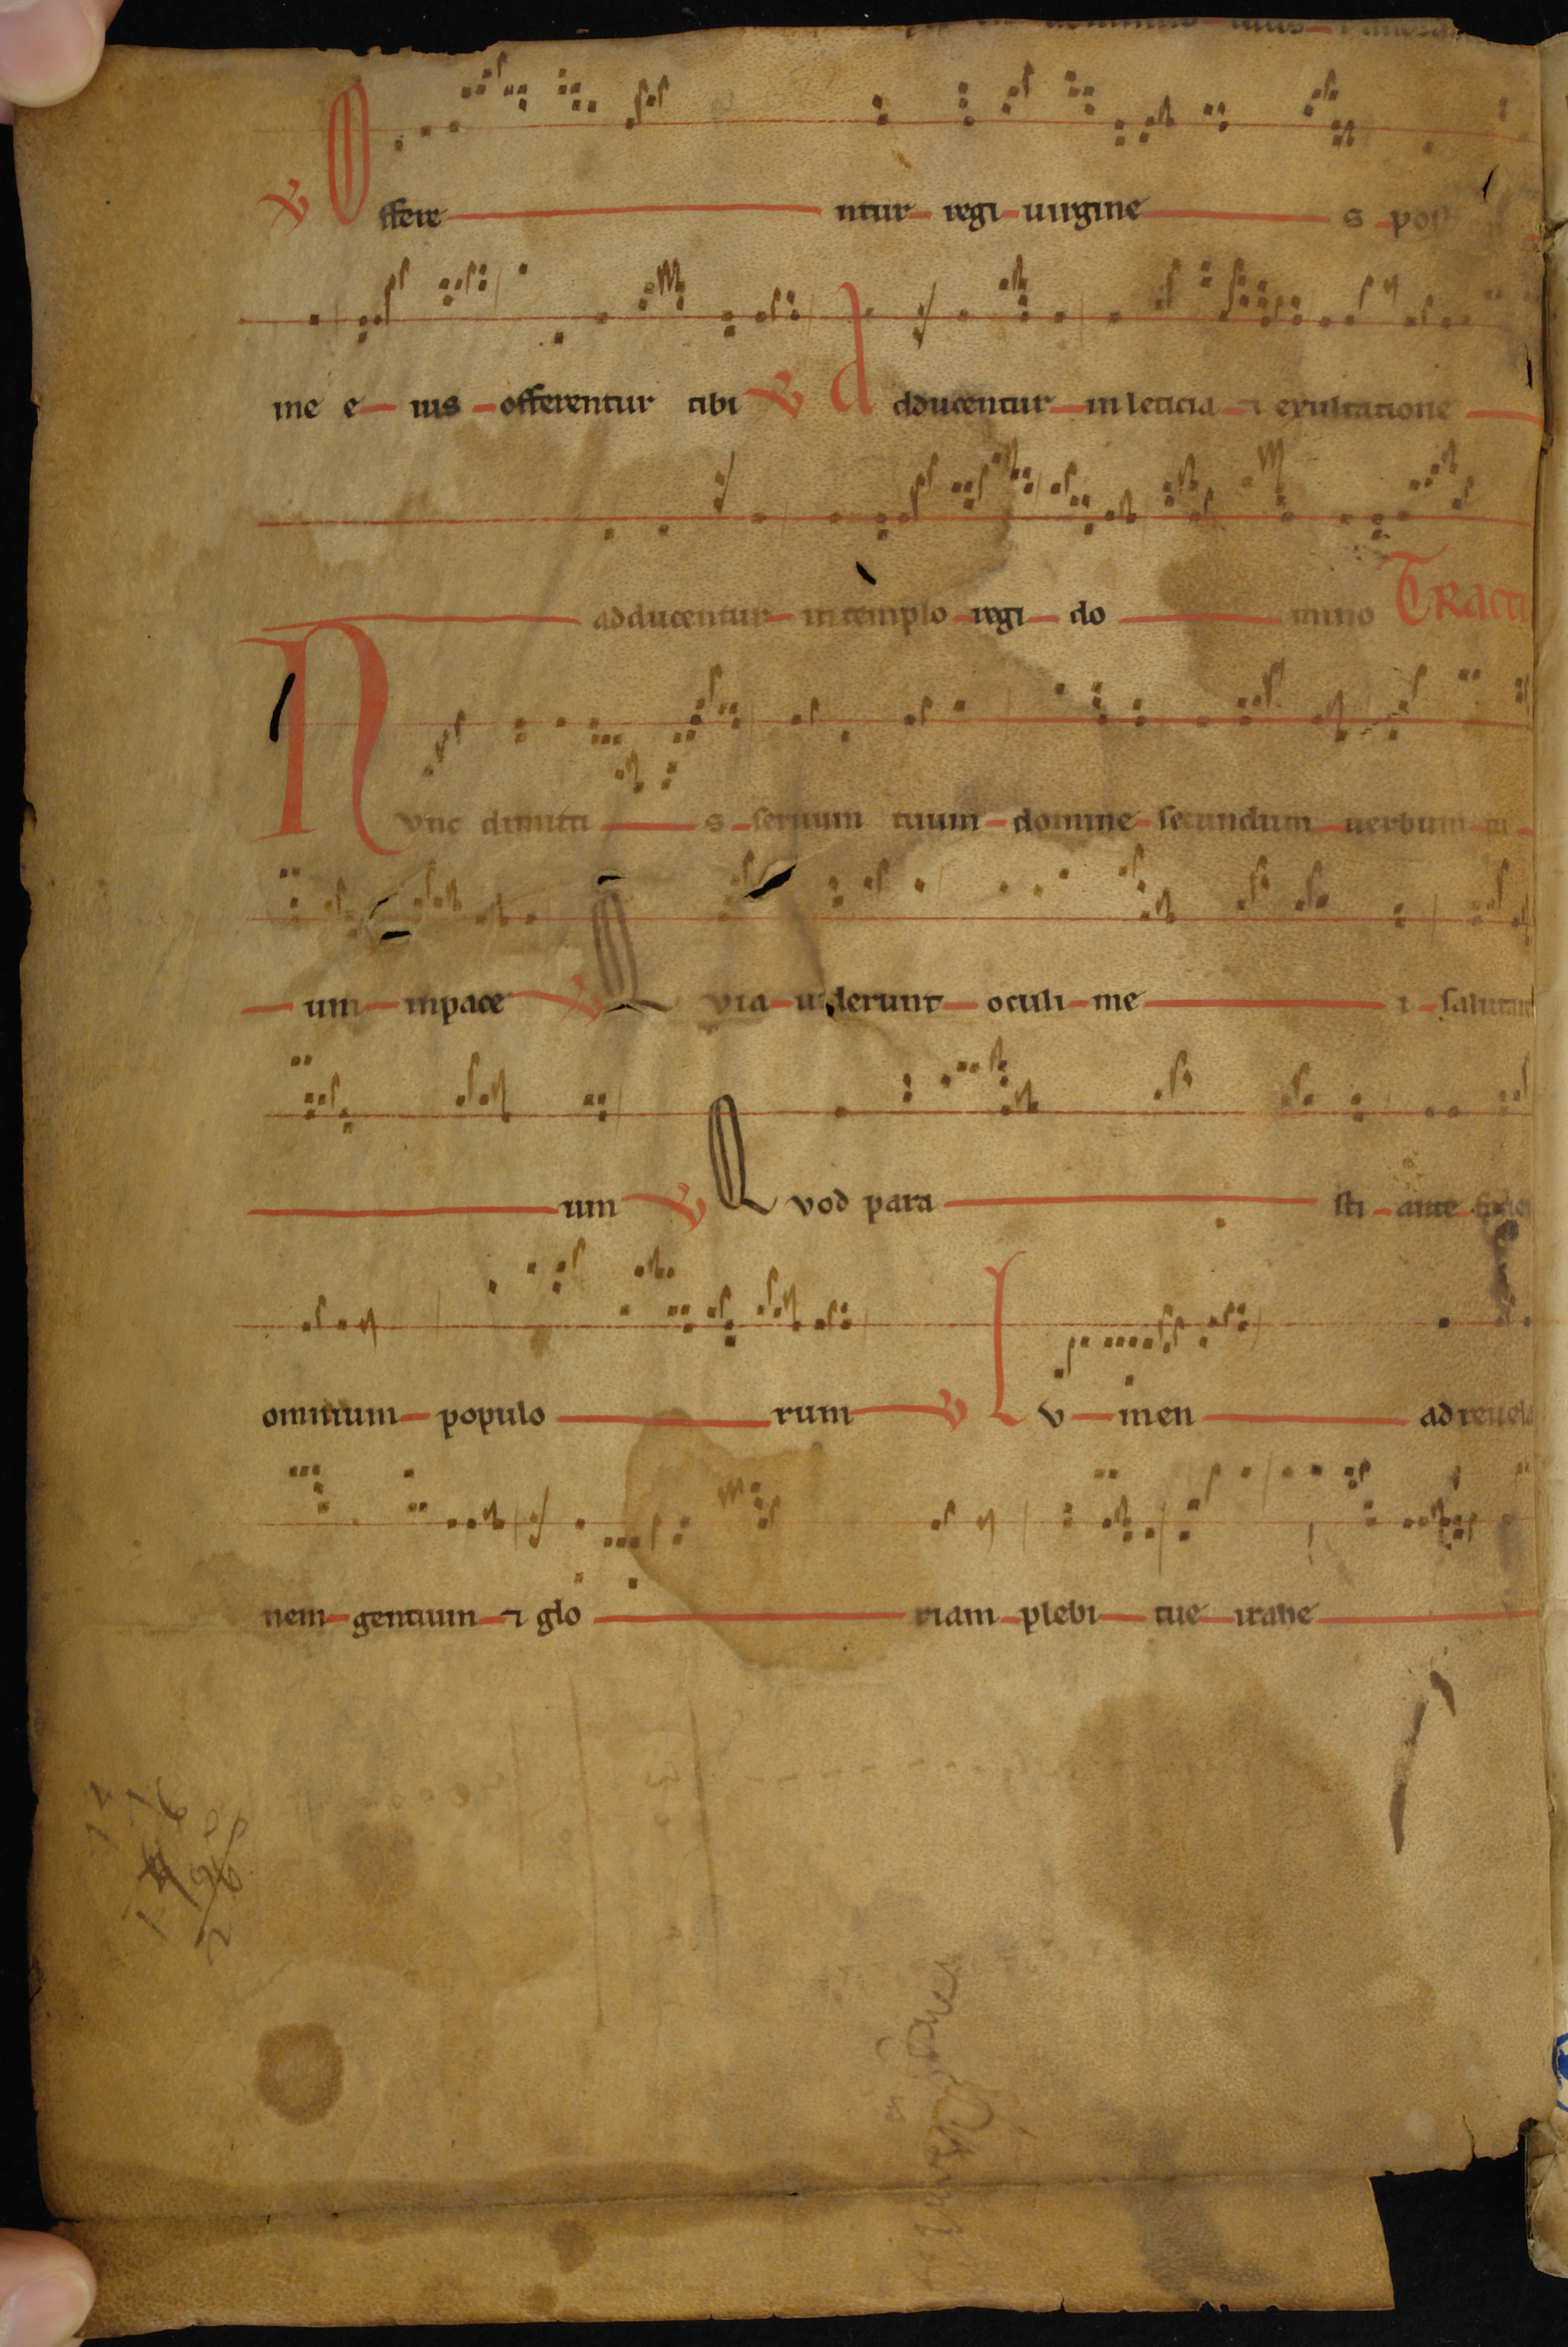 ℣ Offere ntur regi uirgine s pos
me e ius offerentur tibi ℣ Adducentur in leticia ⁊ exultatione
adducentur in templo regi do mino Tracti
Nvnc dimitti s seruum tuum domine secundum uerbum tu
um inpace ℣ Qvia uiderunt oculi me i salutare
um ℣ Qvod para sti ante faciem
omnium populo rum ℣ Lv men ad reuela
nem gentium ⁊ glo riam plebi tue israhe